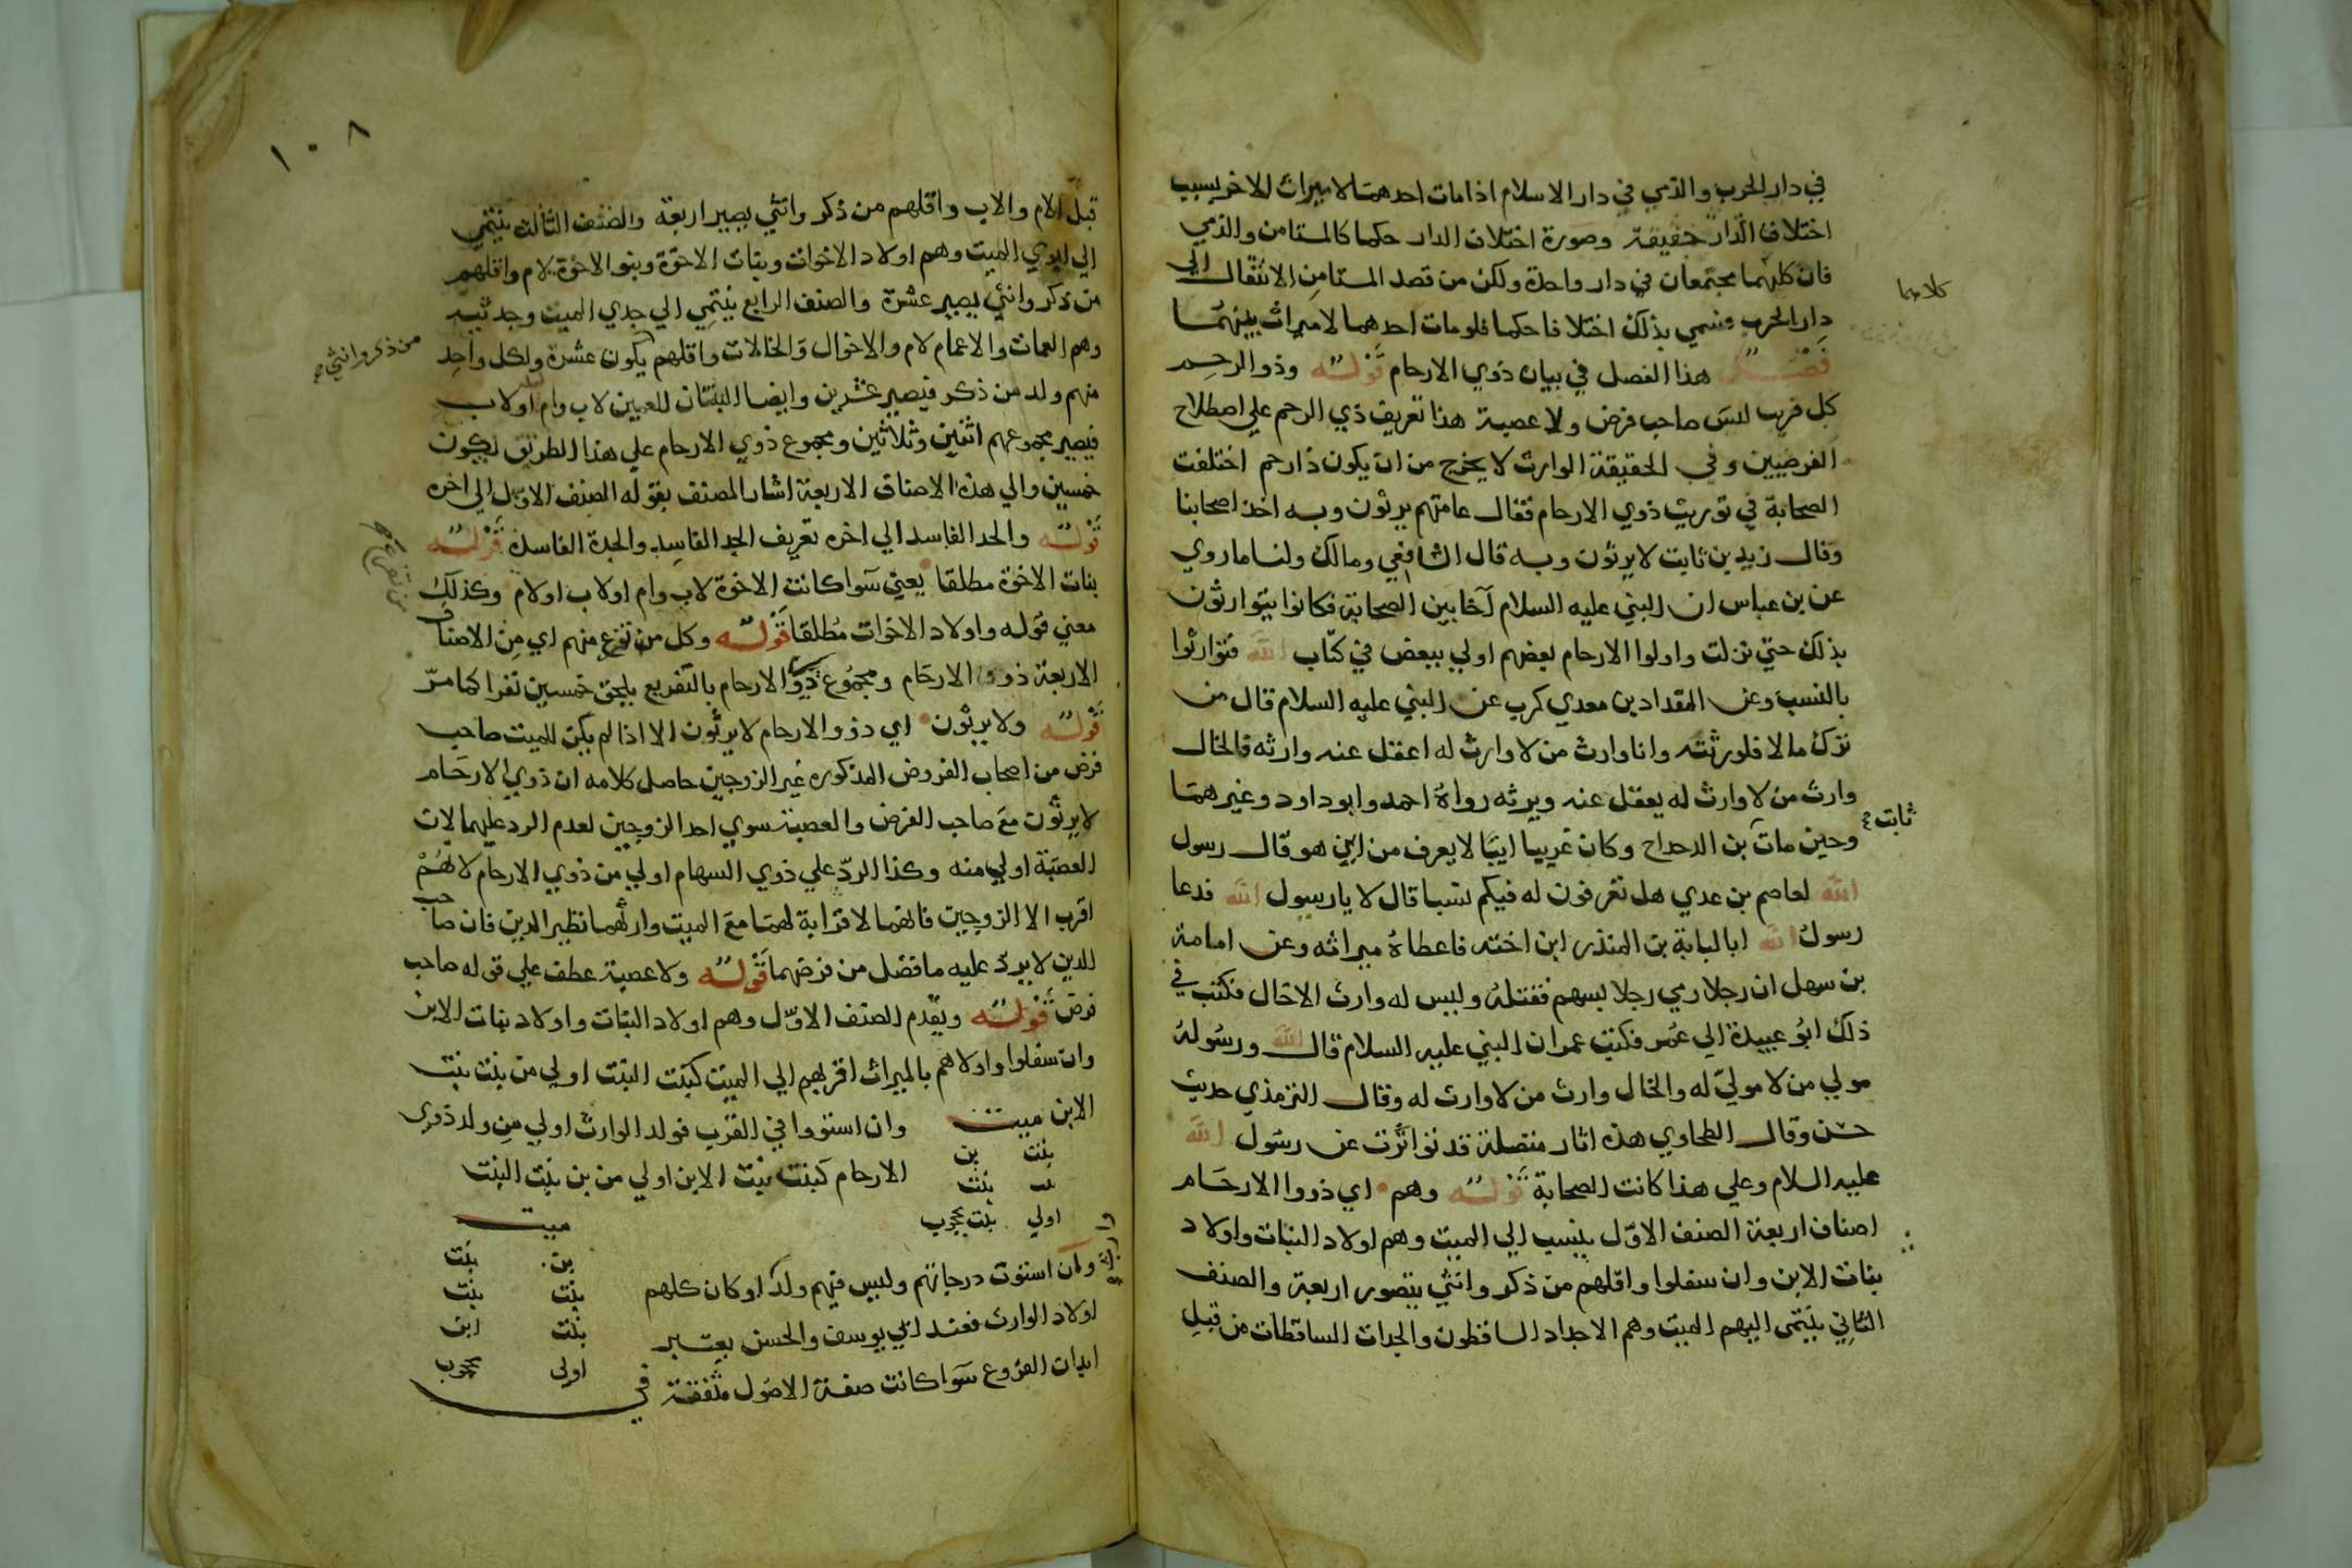 في دار الحرب والذمي في دار الاسلام اذا مات احدهما لا ميراث للاخر بسبب
اختلاف الدار حقيقة وصورة اختلاف الدار حكما كالمستامن والذمي
فان كليهما مجتمعان في دار واحدة ولكن من قصد المستامن الانتقال الي
كلاهما
دار الحرب فسمي بذلك اختلافا حكما فلو مات احدهما لا ميراث بينهما
فصل هذا الفصل في بيان ذوي الارحام قوله وذو الرحم
كل قريب ليس صاحب فرض ولا عصبة هذا تعريف ذي الرحم علي اصطلاح
الفرضيين وفي الحقيقة الوارث لا يخرج من ان يكون ذا رحم اختلفت
الصحابة في توريث ذوي الارحام فقال عامتهم يرثون وبه اخذ اصحابنا
وقال زيد بن ثابت لا يرثون وبه قال الشافعي ومالك ولنا ما روي
عن بن عباس ان النبي عليه السلام آخا بين الصحابة فكانوا يتوارثون
بذلك حتي نزلت واولوا الارحام بعضهم اولي ببعض في كتاب الله فتوارثوا
بالنسب وعن المقداد بن معدي كرب عن النبي عليه السلام قال من
ترك مالا فلورثته وانا وارث من لا وارث له اعقل عنه وارثه فالخال
وارث من لا وارث له يعقل عنه ويرثه رواه احمد وابو داود وغيرهما
ثابت
وحين مات بن الدحداح وكان غريبا ايتيا لا يعرف من اين هو قال رسول
الله لعاصم بن عدي هل تعرفون له فيكم نسبا قال لا يا رسول الله فدعا
رسول الله ابا لبابة بن المنذر ابن اخته فاعطاه ميراثه وعن امامة
بن سهل ان رجلا رمي رجلا بسهم فقتله وليس له وارث الا خال فكتب في
ذلك ابو عبيدة الي عمر فكتب عمر ان النبي عليه السلام قال الله ورسوله
مولي من لا مولي له والخال وارث من لا وارث له وقال الترمذي حديث
حسن وقال الطحاوي هذه اثار متصلة قد تواترت عن رسول الله
عليه السلام وعلي هذا كانت الصحابة قوله وهم اي ذووا الارحام
اصناف اربعة الصنف الاول ينسب الي الميت وهم اولاد البنات واولاد
بنات الابن وان سفلوا واقلهم من ذكر وانثي يتصور اربعة والصنف
الثاني ينتمي اليهم الميت وهم الاجداد الساقطون والجدات الساقطات من قبل
١٠٨
قبل الام والاب واقلهم من ذكر وانثي يصير اربعة والصنف الثالث ينتمي
الي ابوي الميت وهم اولاد الاخوات وبنات الاخوة وبنو الاخوة لام واقلهم
من ذكر وانثي يصير عشرة والصنف الرابع ينتمي الي جدي الميت وجدتيه
وهم العمات والاعمام لام والاخوال والخالات واقلهم يكون عشرة ولكل واحد
من ذكر وانثي
منهم ولد من ذكر فيصير عشرين وايضا البنتان للعمين لاب وام او لاب
فيصير مجموعهم اثنين وثلاثين ومجموع ذوي الارحام علي هذا الطريق يكون
خمسين والي هذه الاصناف الاربعة اشار المصنف بقوله الصنف الاول الي اخره
قوله والجد الفاسد الي اخره تعريف الجد الفاسد والجدة الفاسدة قوله
بنات الاخوة مطلقا يعني سوا كانت الاخوة لاب وام او لاب او لام وكذلك
معني قوله واولاد الاخوات مطلقا قوله وكل من تفرع منهم اي من الاصناف
الاربعة ذووا الارحام ومجموع ذوي الارحام بالتفريع يلحق خمسين نفرا كما مر
قوله ولا يرثون اي ذووا الارحام لا يرثون الا اذا لم يكن للميت صاحب
فرض من اصحاب الفروض المذكوره غير الزوجين حاصل كلامه ان ذوي الارحام
لا يرثون مع صاحب الفرض والعصبة سوي احد الزوجين لعدم الرد عليهما لان
العصبة اولي منه وكذا الرد علي ذوي السهام اولي من ذوي الارحام لانهم
اقرب الا الزوجين فانهما لا قرابة لهما مع الميت وارثهما نظير الدين فان صاحب
الدين لا يرد عليه ما فضل من فرضهما قوله ولا عصبة عطف علي قوله صاحب
فرض قوله ويقدم الصنف الاول وهم اولاد البنات واولاد بنات الابن
وان سفلوا واولاهم بالميراث اقربهم الي الميت كبنت البنت اولي من بنت بنت
الابن ميت وان استووا في القرب فولد الوارث اولي من ولد ذوي
بنت بن
بنت
الارحام كبنت بنت الابن اولي من بن بنت البنت
اولي بنت محجوب
ميت
بن بنت
بنت بنت
بنت ابن
اولي محجوب
وان استوت درجاتهم وليس فيهم ولد او كان كلهم
وارث
اولاد الوارث فعند ابي يوسف والحسن يعتبر
ابدان الفروع سوا كانت صفة الاصول متفقة
في